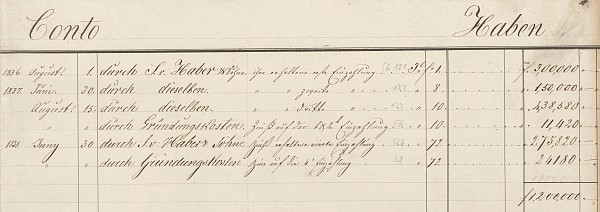 Conto Haben
1836 August 1. durch S. v. Haber & Söhne, ihre erhaltene erste Einzahlung f 1 f 300,000 —
1837. Juni 30. durch dieselben " " zweite " 8 " 150,000 —
August 15. durch dieselben " " dritte " 10 " 438,580 —
" " durch Gründungskosten Zinß auf der 1 & 2 Einzahlung " 10 " 11,420 —
1838 Juny 30 durch S. v. Haber & Söhne erhaltene vierte Einzahlung " 72 " 275,820 —
" durch Gründungskosten Zins auf die Einzahlung " 72 " 24180 —
f 1,200,000. —